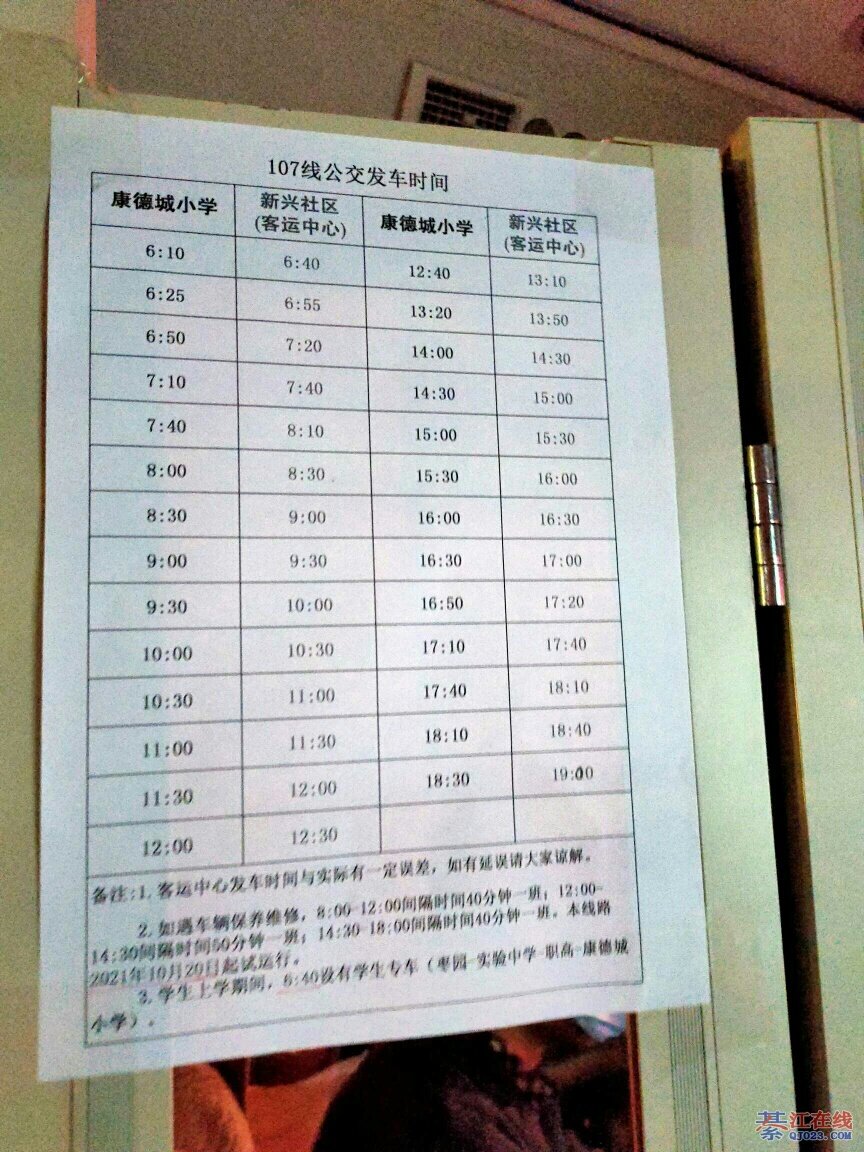 107线公交发车时间
康德城小学 新兴社区(客运中心) 康德城小学 新兴社区(客运中心)
6:10 6:40 12:40 13:10
6:25 6:55 13:20 13:50
6:50 7:20 14:00 14:30
7:10 7:40 14:30 15:00
7:40 8:10 15:00 15:30
8:00 8:30 15:30 16:00
8:30 9:00 16:00 16:30
9:00 9:30 16:30 17:00
9:30 10:00 16:50 17:20
10:00 10:30 17:10 17:40
10:30 11:00 17:40 18:10
11:00 11:30 18:10 18:40
11:30 12:00 18:30 19:00
12:00 12:30
备注:1.客运中心发车时间与实际有一定误差，如有延误请大家谅解。
2.如遇车辆保养维修，8:00-12:00间隔时间40分钟一班；12:00-
14:30间隔时间50分钟一班；14:30-18:00间隔时间40分钟一班。本线路
2021年10月20日起试运行。
3.学生上学期间，6:40设有学生专车（枣园-实验中学-职高-康德城
小学）。
綦江在线
QJ023.COM